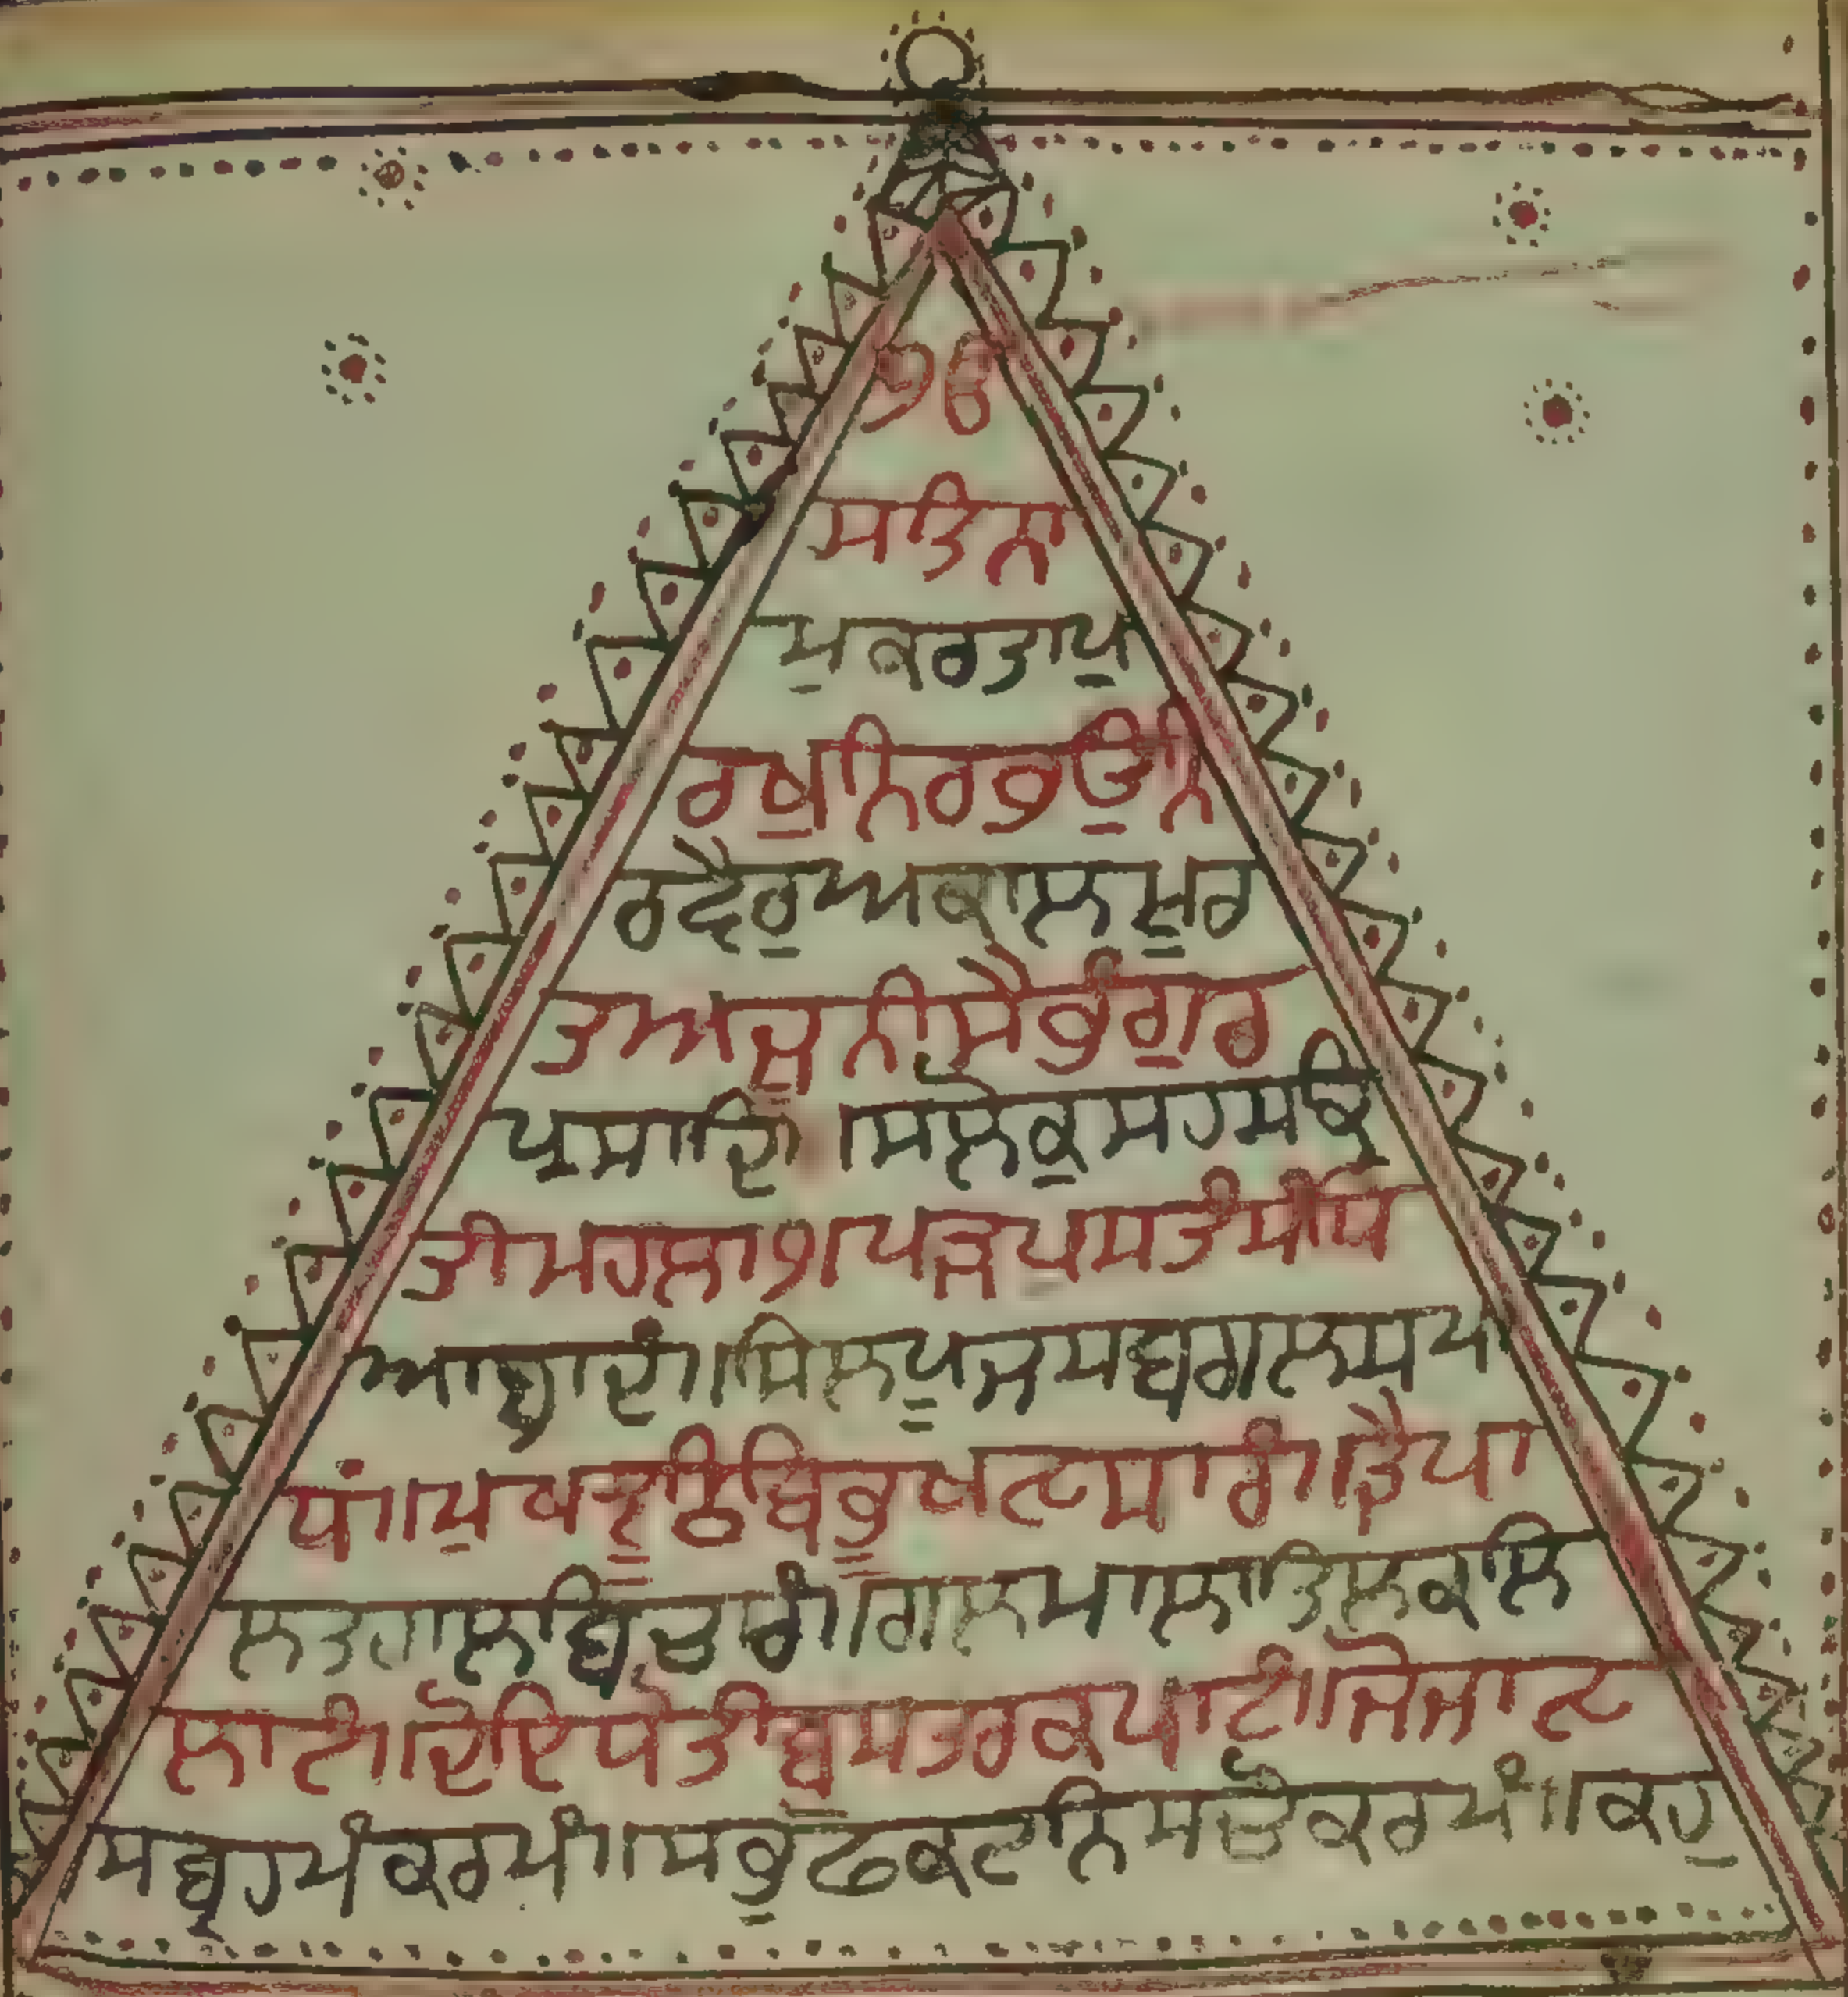 ੴ
ਸਤਿਨਾ
ਮੁਕਰਤਾਪੁ
ਰਖੁਨਿਰਭਉਨਿ
ਰਵੈਰੁਅਕਾਲਮੂਰ
ਤਅਜੂਨੀਸੈਭੰਗੁਰ
ਪ੍ਰਸਾਦਿ॥ਸਲੋਕੁਸਹਸਕ੍ਰਿ
ਤੀਮਹਲਾ੧॥ਪੜਪਸਤੰਸੰਧਿ
ਆਬਾਦੰ॥ਸਿਲਪੂਜਸਬਗਲਸਮਾ
ਧੰ॥ਮੁਖਝੂਠਿਬਿਭੂਖਣਸਾਰੰ॥ਤ੍ਰੈਪਾ
ਲਤਹਾਲਬਿਚਾਰੰ॥ਗਲਮਾਲਾਤਿਲਕਲਿ
ਲਾਟੰ॥ਦੋਇਧੋਤੀਬਸਤਰਕਪਾਟੰ॥ਜੋਜਾਣ
ਸਬ੍ਰਹਮੰਕਰਮੰ॥ਸਭੁਫਕਟਨਿਸਚੈਕਰਮੰ॥ਕਹੁ